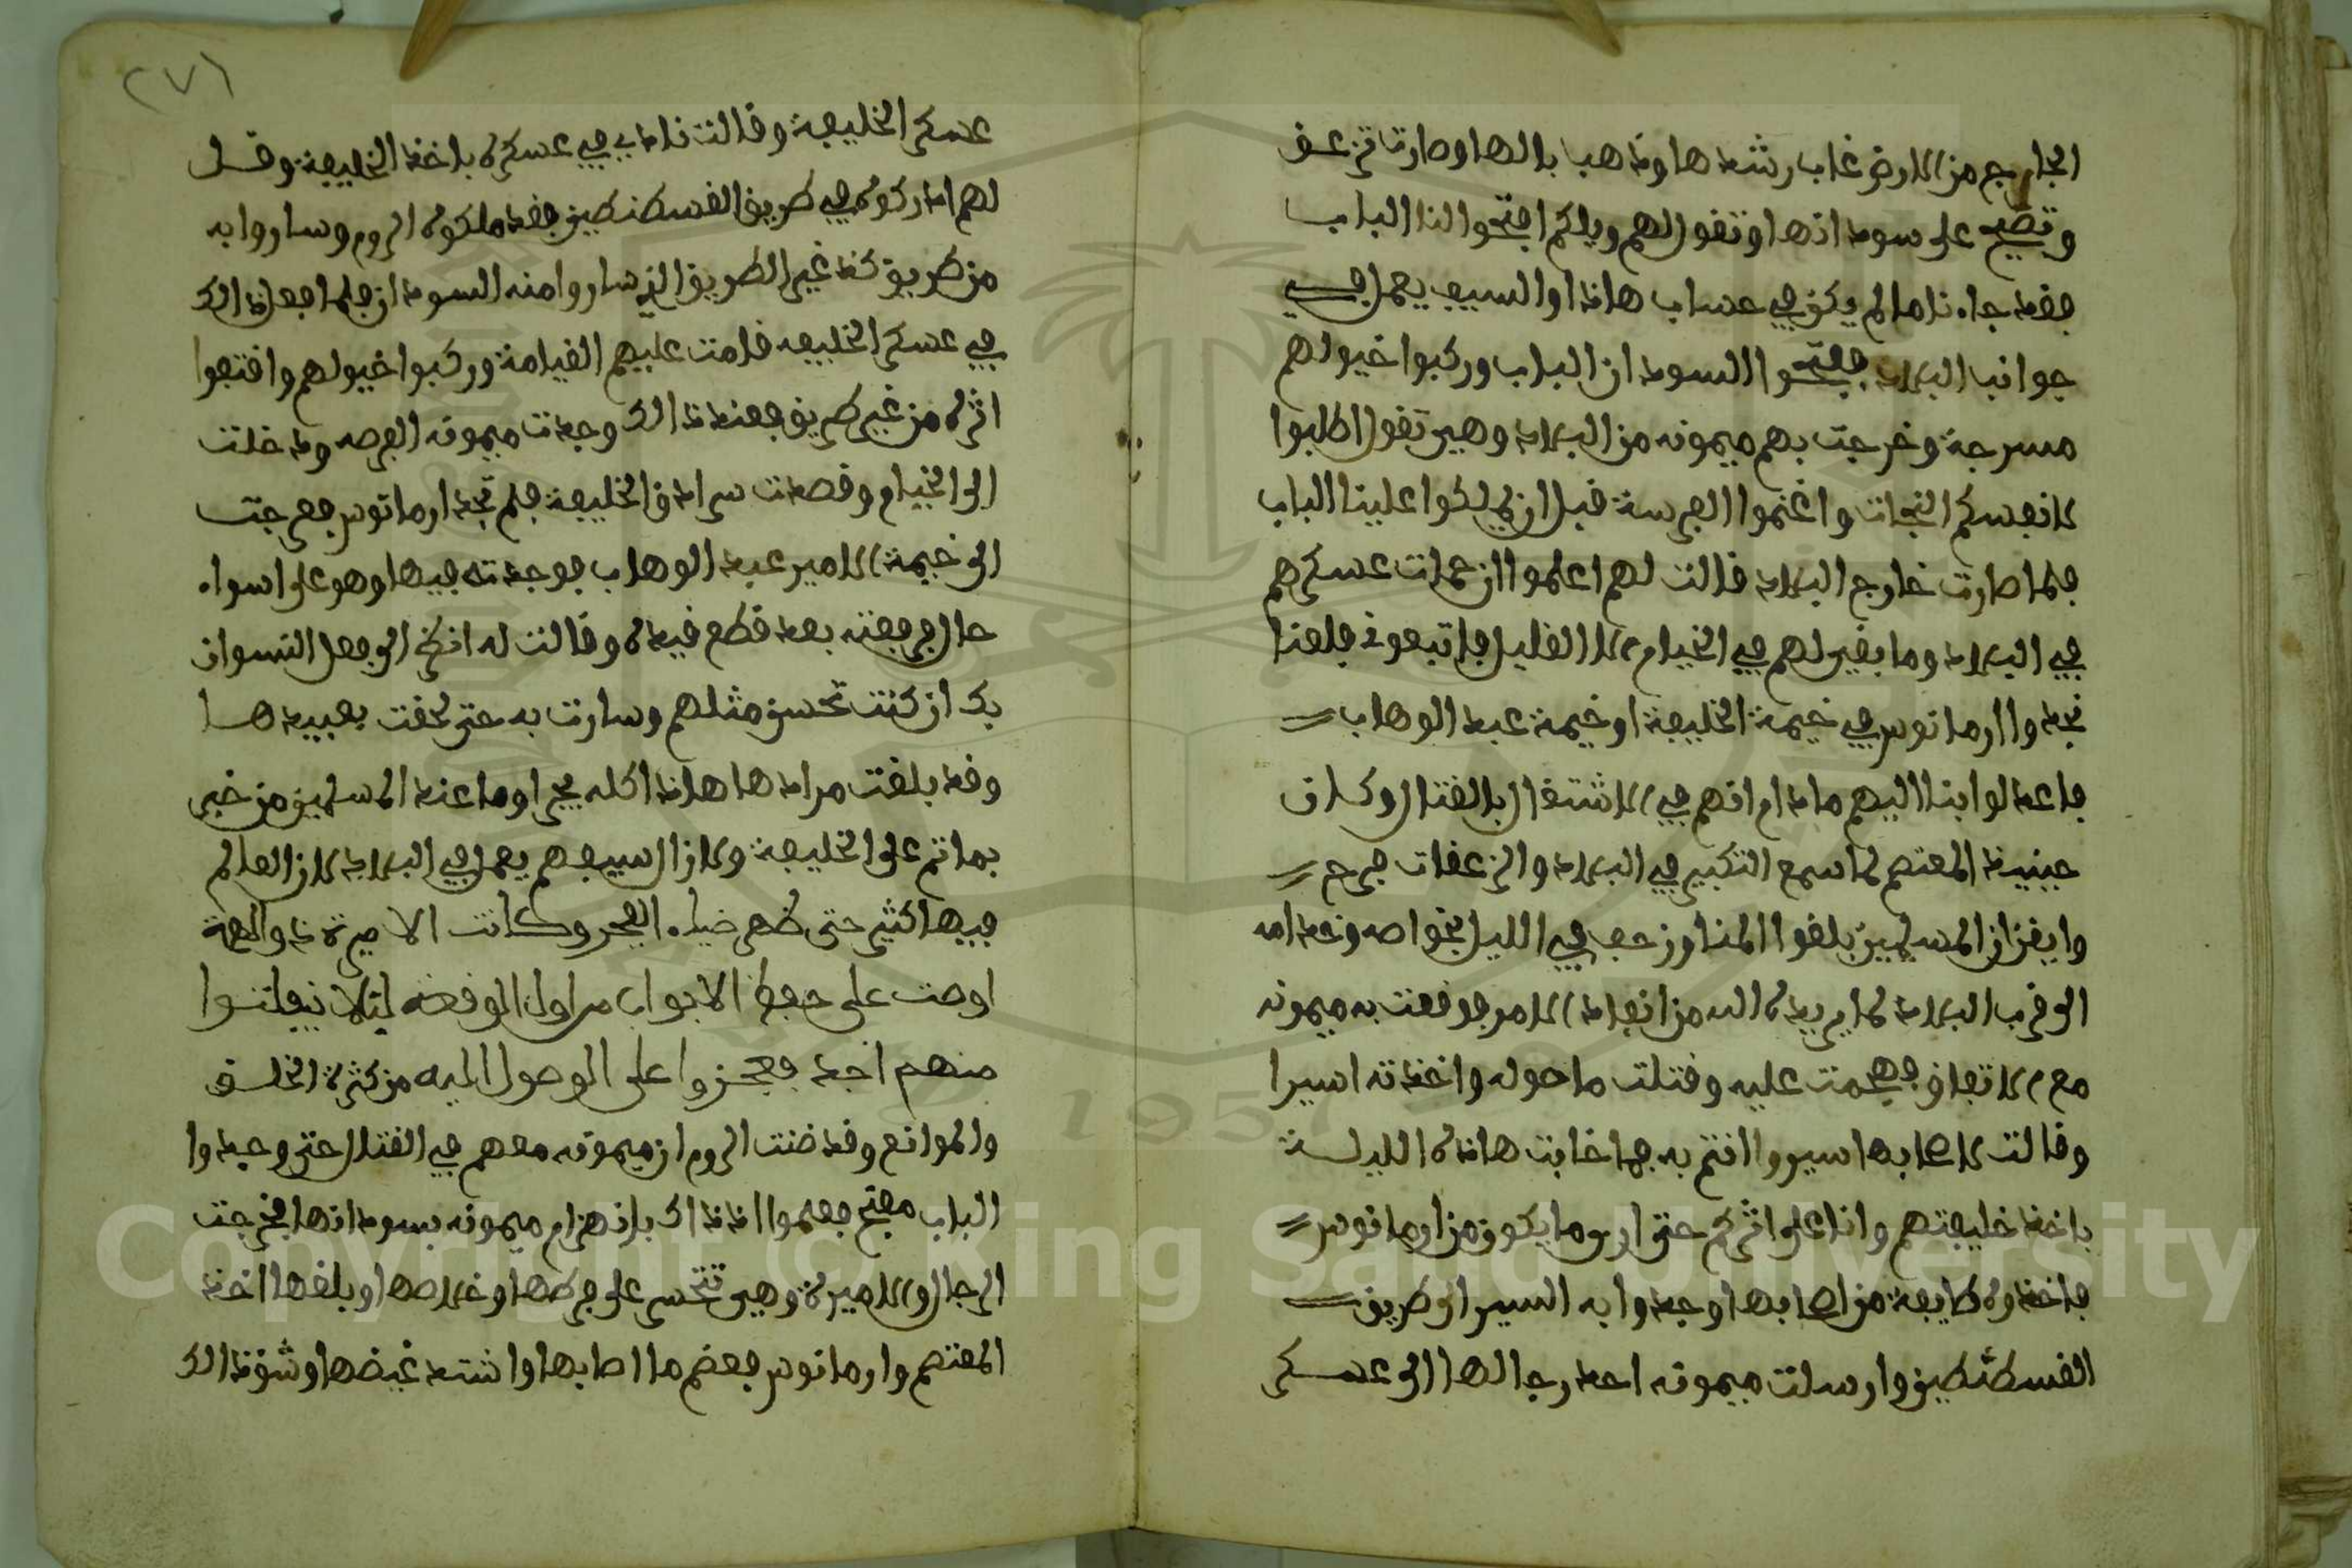 الخارج من الارض غاب رشدها وذهب بالها وصارت تزعق
وتصيح على سودانها وتقول لهم ويلكم افتحوا لنا الباب
فقد جاءنا ما لم يكن في حساب هاذا والسيف يعمل في
جوانب البلاد ففتحوا السودان الباب وركبوا خيولهم
مسرجة وخرجت بهم ميمونه من البلاد وهي تقول اطلبوا
لانفسكم النجات واغنموا الفرسة قبل ان يملكوا علينا الباب
فلما صارت خارج البلاد قالت لهم اعلموا ان حملت عسكرهم
في البلاد وما بقي لهم في الخيام الا القليل فاتبعوني فلعنا
نجدوا ارمانوس في خيمة الخليفة او خيمة عبد الوهاب
فاعدلوا بنا اليهم ما دام انهم في الاشتغال بالقتال وكان
حينيذ المعتصم لما سمع التكبير في البلاد والزعقات فرح
وايقن ان المسلمين بلغوا المنا وزحف في الليل بخواصه وخدامه
الى قرب البلاد لما يريده الله من انفاذ الامر فوقعت به ميمونه
مع الاتفاق فهجمت عليه وقتلت ما حوله واخذته اسيرا
وقالت لاصحابها سيروا انتم به فما خابت هاذه الليلة
باخذ خليفتهم وانا على اثركم حتى ارى ما يكون من ارمانوس
فاخذوه طايفة من اصحابها وجدوا به السير الى طريق
القسطنطين وارسلت ميمونه احد رجالها الى عسكر
(٢٧١
عسكر الخليفة وقالت نادي في عسكره باخذ الخليفة وقل
لهم ادركوه في طريق القسطنطين فقد ملكوه الروم وساروا به
من طريق كذا غير الطريق الذي ساروا منه السودان فلما فعل ذالك
في عسكر الخليفه قامت عليهم القيامة وركبوا خيولهم واقتفوا
اثره من غير طريق فعند ذالك وجدت ميمونه الفرصه ودخلت
الى الخيام وقصدت سرادق الخليفة فلم تجد ارمانوس فعرجت
الى خيمة الامير عبد الوهاب فوجدته فيها وهو على اسواء
حال فرفعته بعد قطع قيده وقالت له انظر الى فعل النسوان
بك ان كنت تحسن مثلهم وسارت به حتى لحقت بعبيدها
وقد بلغت مرادها هاذا كله يجرى وما عند المسلمين من خبر
بما تم على الخليفة ولا زال سيفهم يعمل في البلاد لان العالم
فيها كثير حتى ظهر ضياء الفجر وكانت الاميرة ذو الهمة
اوصت على حفظ الابواب من اول الوقعه ليلا ينفلتوا
منهم احد فعجزوا على الوصول اليه من كثرة الخلق
والموانع وقد ضنت الروم ان ميمونه معهم في القتال حتى وجدوا
الباب مفتح فعلموا اذ ذاك بانهزام ميمونه بسودانها فخرجت
الرجال والاميرة وهي تتحسر على فرطها وخلاصها وبلغها اخذ
المعتصم وارمانوس فعضم ما اصابها واشتد غيضها وشق ذالك